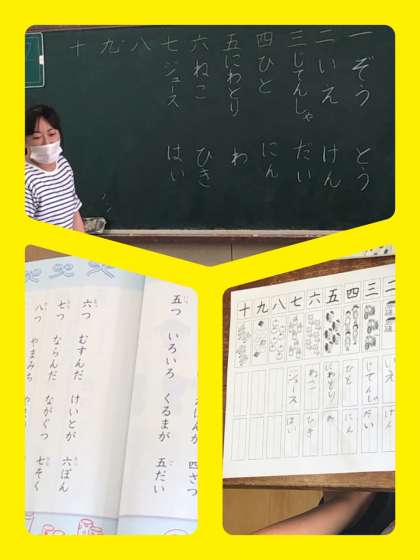 一 ぞう とう
二 いえ けん
三 じてんしゃ だい
四 ひと にん
五 にわとり わ
六 ねこ ひき
七 ジュース はい
八
九
十
四さつ
五つ いろいろ くるまが 五だい
六つ むすんだ けいとが 六ぽん
七つ ならんだ ながぐつ 七そく
八つ やまみち
二 いえ けん
三 じてんしゃ だい
四 ひと にん
五 にわとり わ
六 ねこ ひき
七 ジュース はい
八
九
十